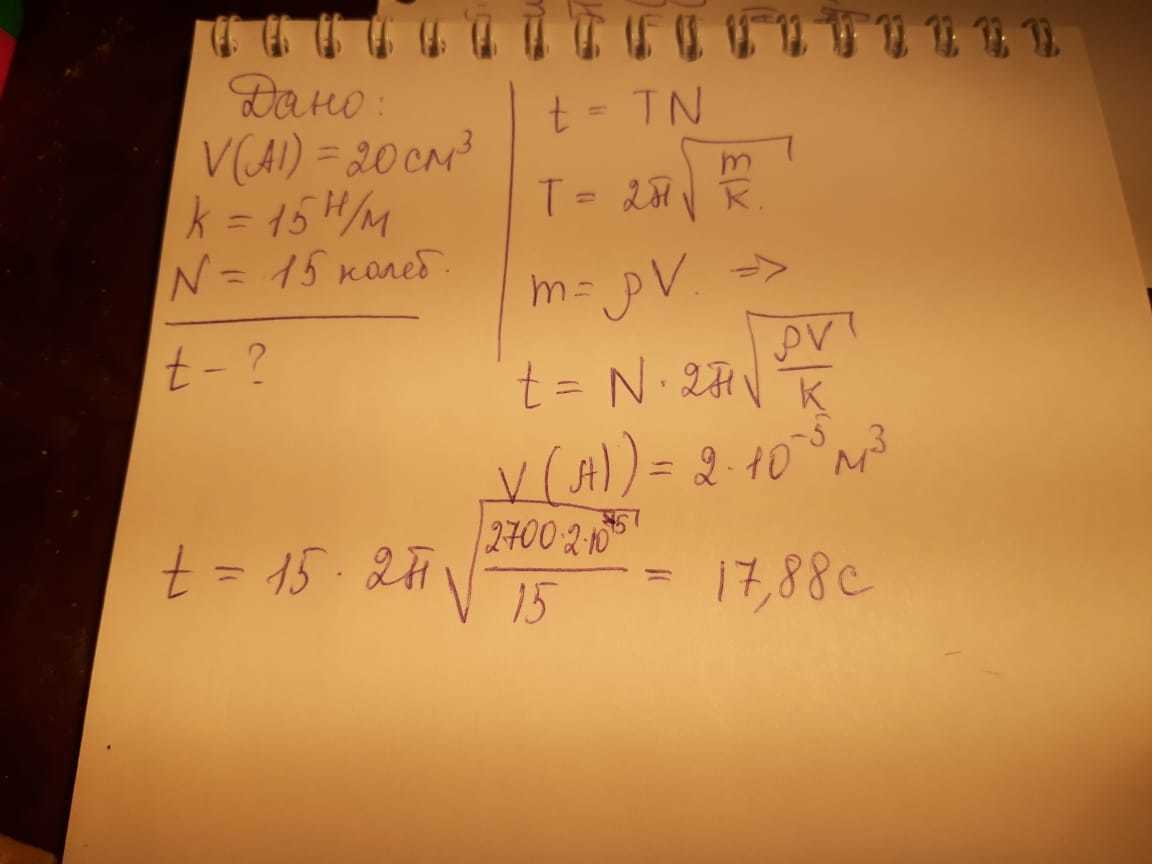 Дано:
V(Al) = 20 см³
k = 15 Н/м
N = 15 колеб.
t - ?
t = TN
T = 2π√(m/k).
m = ρV. =>
t = N · 2π√(ρV/k)
V(Al) = 2 · 10⁻⁵ м³
t = 15 · 2π√(2700·2·10⁻⁵/15) = 17,88 с